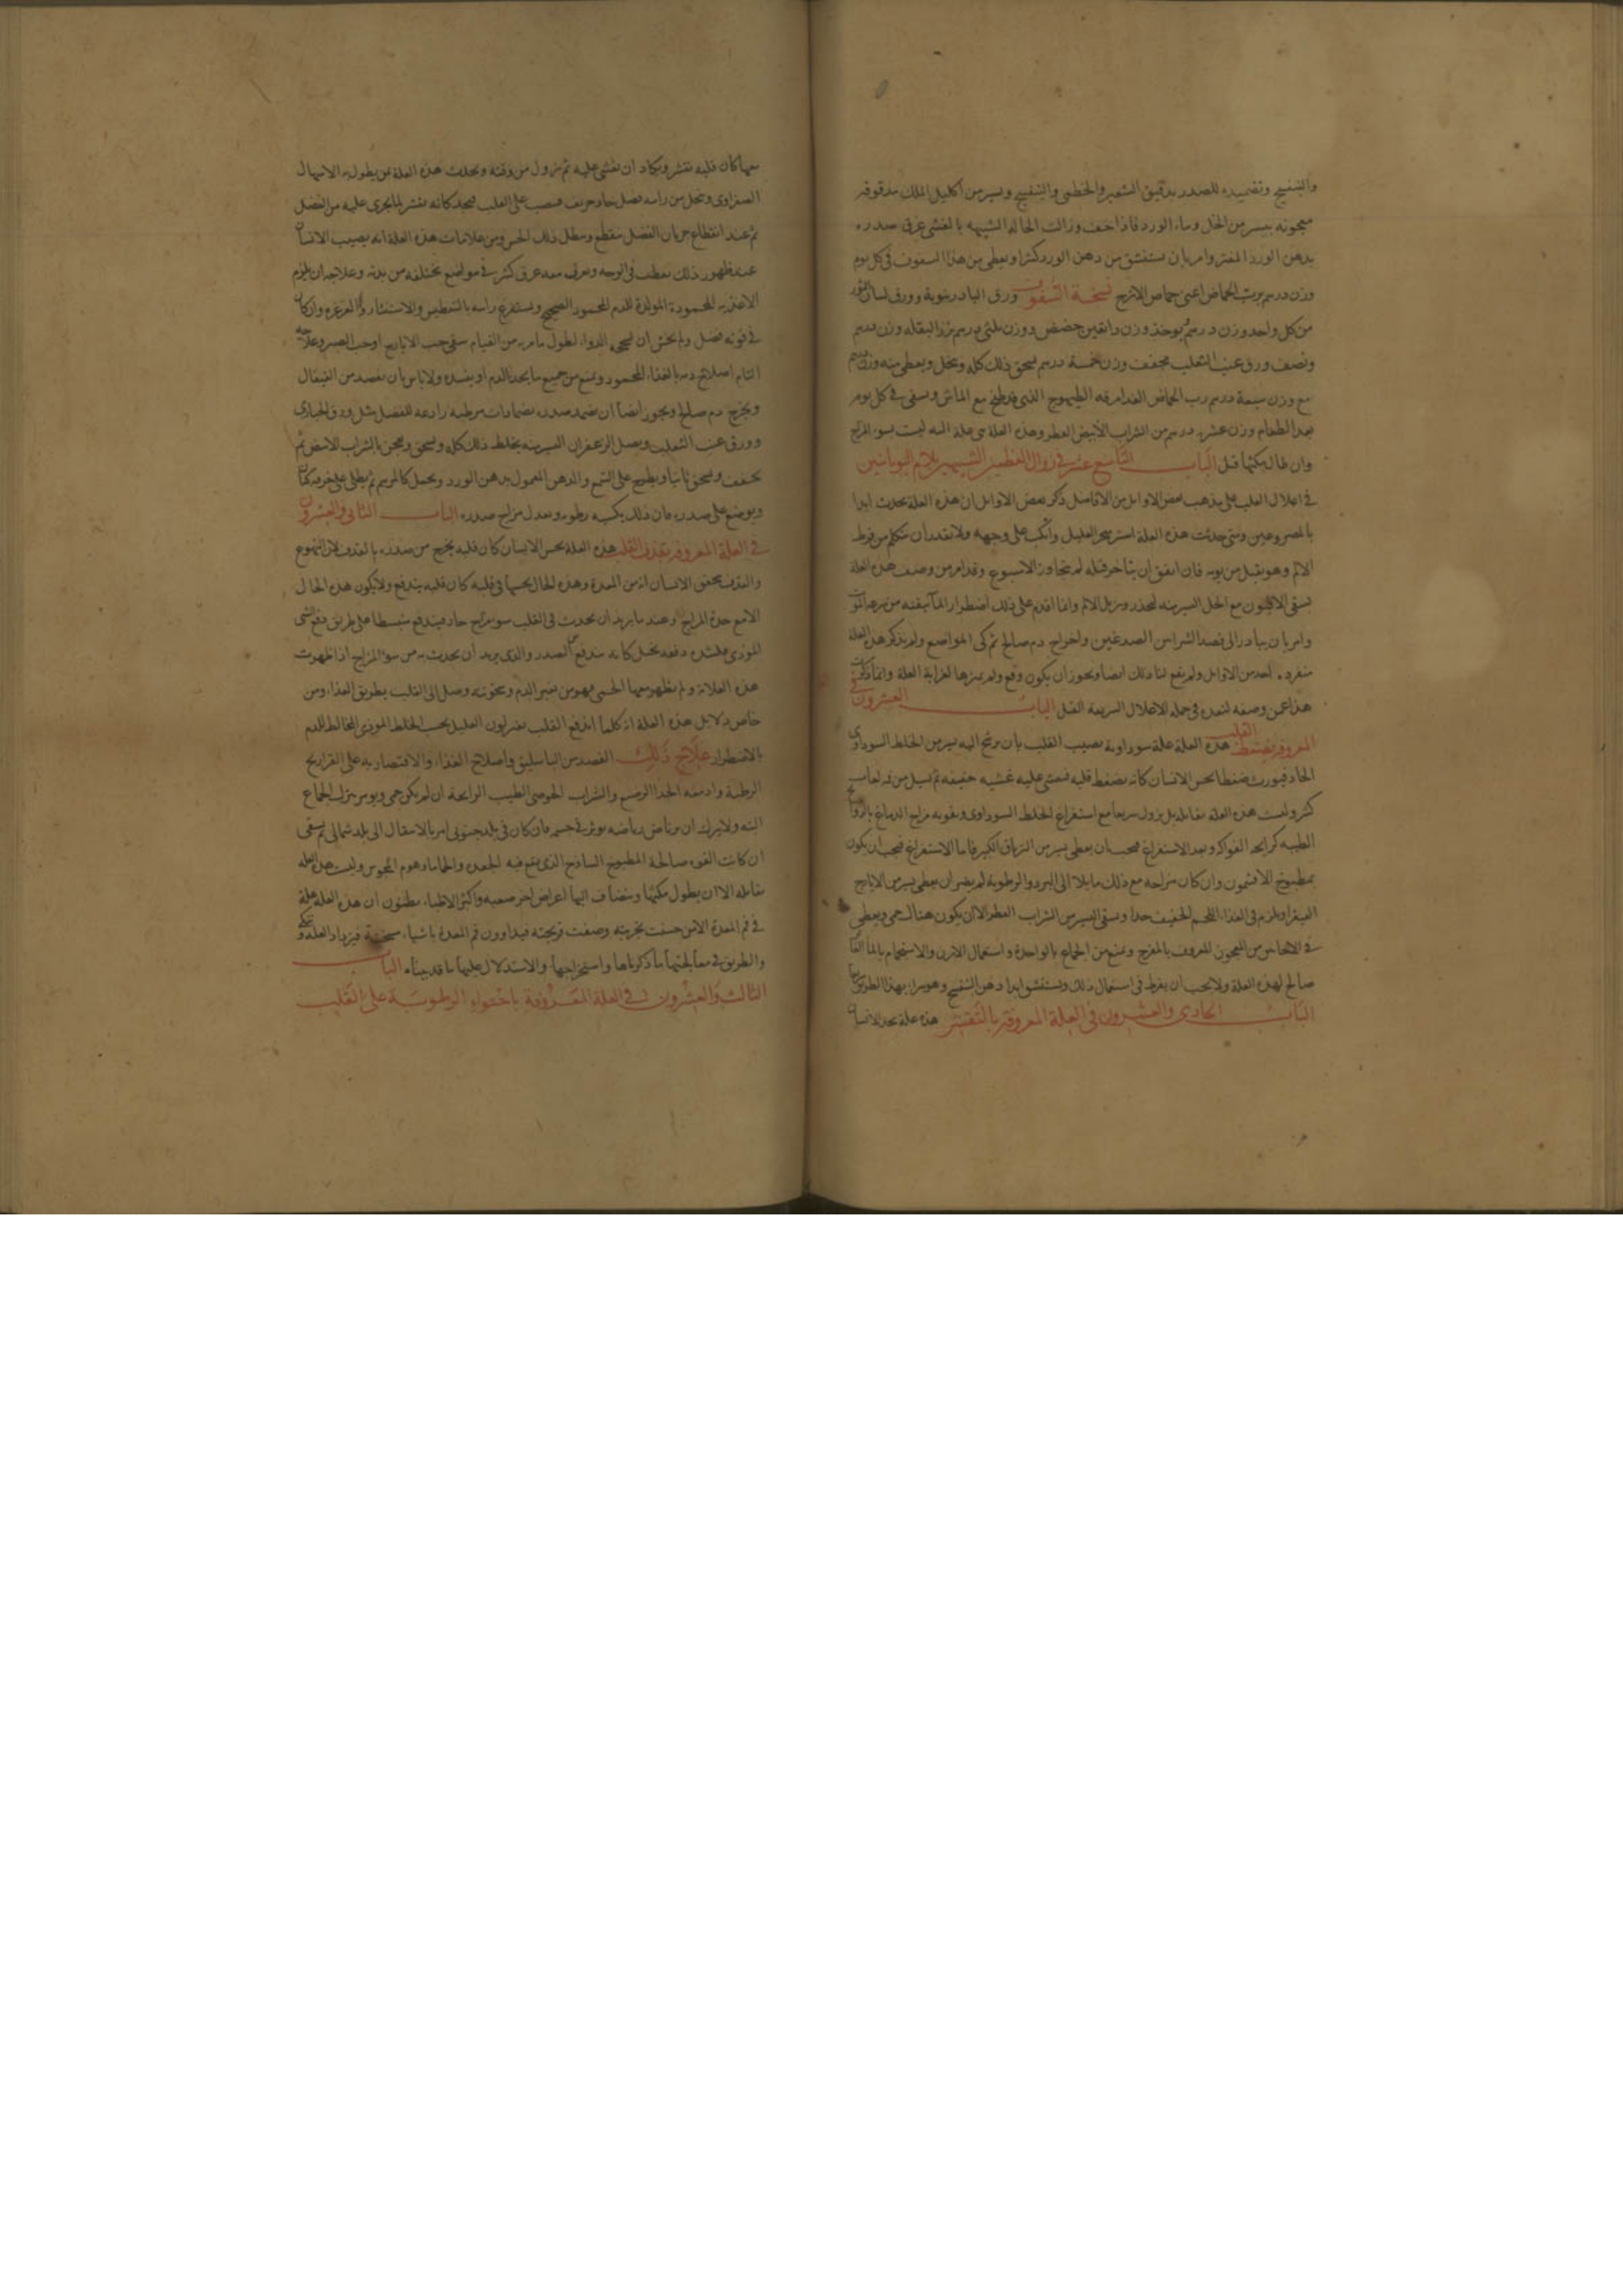 والبنفسج وتضميده للصدر بدقيق الشعير والخطمي والبنفسج ويسير من اكليل الملك مدقوقة
معجونة بيسير من الخل وماء الورد فاذا خف وزالت الحالة الشبيهة بالغشي عرق صدره
بدهن الورد المفتر وامر بان يستنشق من دهن الورد كثيرا ويعطي من هذا السفوف في كل يوم
وزن درهم برب الحماض اعني حماص الاترج نسخة السفوف ورق البادرنبوية وورق لسان الثور
من كل واحد وزن درهم يوخذ وزن دانقين حضض ووزن ثلثي درهم بزر البقلة وزن درهم
ونصف ورق عنب الثعلب مجفف وزن خمسة درهم يسحق ذلك كله وينخل ويعطي منه وزن درهم
مع وزن سبعة درهم رب الحماض الغداء مرقة الطيهوج الذي قد طبخ مع الماش ويسقي في كل يوم
بعد الطعام وزن عشرة درهم من الشراب الابيض العطر وهذه العلة هي علة ليست بسوء المزاج
وان طال مكثها قتل الباب التاسع عشر في زوال الفطير الشبيه بلام اليونانيين
في اعلال القلب على مذهب بعض الاوائل من الافاضل ذكر بعض الاوائل ان هذه العلة تحدث ابدا
بالمصروعين ومتى حدثت هذه العلة استرسخ العليل وانكب على وجهه ولا يقدر ان يتكلم من فرط
الالم وهو يقتل من يومه فان اتفق ان يتاخر قتله لم يتجاوز الاسبوع وقد امر من وصف هذه العلة
بسقي الافيون مع الخل اليسير منه ليخدر ويزيل الالم وانما اقدم على ذلك اضطرارا لما تيقنه من سرعة الموت
وامر بان يبادر الى فصد الشراس الصدغين واخراج دم صالح ثم كي المواضع ولم يذكر هذه العلة
منفردة احد من الاوائل ولم يقع لنا ذلك ايضا ويجوز ان يكون وقع ولم يميزها لغرابة العلة وانما ذكرت
هذا عمن وصفه لتعده في جملة الاعلال السريعة القتل الباب العشرون في
المعروفة بضغط القلب هذه العلة علة سوداوية تصيب القلب بان يرشح اليه يسير من الخلط السوداوي
الحاد فيورث ضغطا يحس الانسان كانه يضغط قلبه فيغشى عليه غشية خفيفة ثم يسيل من فيه لعاب
كثير وليست هذه العلة بقاتلة بل يزول سريعا مع استفراغ الخلط السوداوي وتقوية مزاج الدماغ بالروائح
الطيبة كرائحة الفواكه وبعد الاستفراغ فيجب ان يعطي يسير من الترياق الكبير فاما الاستفراغ فيجب ان يكون
بمطبوخ الافتيمون وان كان مزاجه مع ذلك مايلا الى البرد والرطوبة لم يضر ان يعطي يسير من الايارج
الفيقرا ويلزم في الغذاء اللحم الخفيف جدا ويسقى اليسير من الشراب العطر الا ان يكون هناك حمى ويعطي
في الاحايين من المعجون المعروف بالمفرح ويمنع من الجماع بالواحدة واستعمال الابزن والاستحمام بالماء الفاتر
صالح لهذه العلة ولا يجب ان يفرط في استعمال ذلك ويستنشق ابدا دهن البنفسج وهو يبرا بهذا الطريق سريعا
الباب الحادي والعشرون في العلة المعروفة بالتقشر هذه علة يجد الانسان
معها كان قلبه تقشر ويكاد ان يغشى عليه ثم يزول من وقته وتحدث هذه العلة بمن يطول به الاسهال
الصفراوي وينحل من راسه فضل حاد حريف فينصب على القلب فيجد كانه يقشر لما يجري عليه من الفضل
ثم عند انقطاع جريان الفضل ينقطع ويبطل ذلك الحس ومن علامات هذه العلة انه يصيب الانسان
عند ظهور ذلك تقطب في الوجه ويعرق معه عرق كثير في مواضع مختلفة من بدنه وعلاجه ان يلزم
الاغذية المحمودة المولدة للدم المحمود الصحيح ويستفرغ راسه بالتعطيس والاستنثار والغرغرة وان كان
في قوته فضل ولم يخش ان يهيجه الدواء لطول ما مر به من القيام سقي حب الايارج او حب الصبر وعلاجه
التام اصلاح دمه بالغذاء المحمود ويمنع من جميع ما يحد الدم او يفسده ولا باس بان يفصد من القيفال
ويخرج دم صالح ويجوز ايضا ان يضمد صدره بضمادات مرطبة رادعة للفضل مثل ورق الخبازي
وورق عنب الثعلب وبصل الزعفران اليسير منه يخلط ذلك كله ويسحق ويعجن بالشراب الابيض ثم
يجفف ويسحق ثانيا ويطرح على الشمع والدهن المعمول بدهن الورد ويجعل كالمرهم ثم يطلى على خرقة كتان
ويوضع على صدره فان ذلك يكسبه رطوبة ويعدل مزاج صدره الباب الثاني والعشرون
في العلة المعروفة بقذف القلب هذه العلة يحس الانسان كان قلبه يخرج من صدره بالقذف لان التهوع
والقذف يحقق الانسان انه من المعدة وهذه الحال يحسها في قلبه كان قلبه يندفع ولا يكون هذه الحال
الا مع حدة المزاج وعند ما يريد ان يحدث في القلب سوء مزاج حاد فيندفع منبسطا على طريق دفع الشي
الموذي دفعه يخيل كانه يندفع الصدر والذي يريد ان يحدث به من سوء المزاج اذا ظهرت
هذه العلامة ولم يظهر معها الحمى فهو من تغير الدم وسخونته وصل الى القلب بطريق الغذاء ومن
خاص دلايل هذه العلة انه كلما اندفع القلب تغير لون العليل بحسب الخلط الموذي المخالط للدم
بالاضطرار علاج ذلك الفصد من الباسليق واصلاح الغذاء والاقتصار به على الفراريج
الرطبة وادمغة الجداء الرضع والشراب الحوصي الطيب الرائحة ان لم يكن حمى ويومر بترك الجماع
البتة ولا يترك ان يرتاض رياضة يوثر في جسمه فان كان في بلد جنوبي امر بالانتقال الى بلد شمالي ثم يسقى
ان كانت القوة صالحة المطبوخ الساذج الذي يقع فيه الجعدة والحاماد هوم المجوس وليست هذه العلة
بقاتلة الا ان يطول مكثها وينضاف اليها اعراض اخر صعبة واكثر الاطباء يظنون ان هذه العلة علة
في فم المعدة الا من حسنت تجربته وصفت قريحته فيداوون فم المعدة باشياء مسخنة فيزداد العلة
والطريق في معالجتها ما ذكرناها واستخراجها والاستدلال عليها ما قد بيناه الباب
الثالث والعشرون في العلة المعروفة باحتواء الرطوبة على القلب